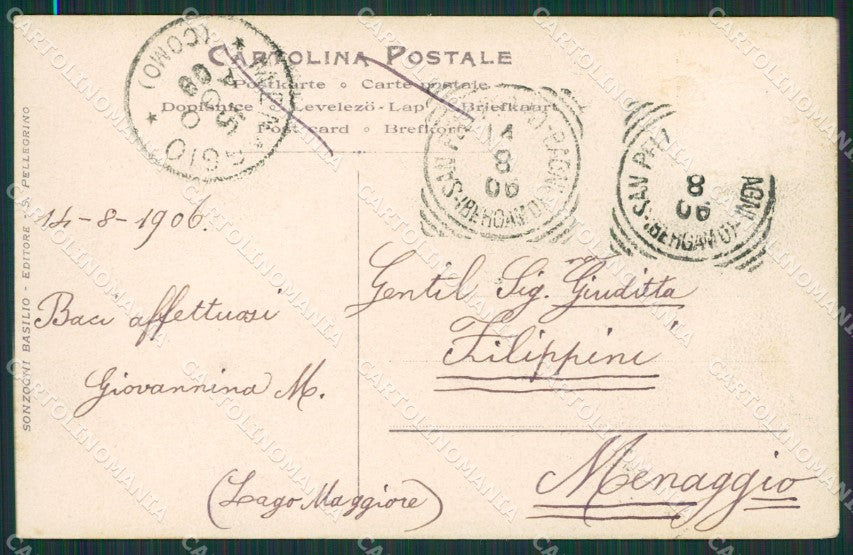 CARTOLINA POSTALE
Postkarte ∘ Carte postale
Dopisnice ∘ Levelező-Lap ∘ Briefkaart
Post card ∘ Brefkort
MENAGGIO
(COMO)
15 08
14
8
06
SAN PELL
(BERGAMO)
8
06
SAN PELL
AGNI
(BERGAMO)
SONZOGNI BASILIO - EDITORE - S. PELLEGRINO
14-8-1906.
Baci affettuosi
Giovannina M.
(Lago Maggiore)
Gentil Sig. Giuditta
Filippini
Menaggio
CARTOLINOMANIA